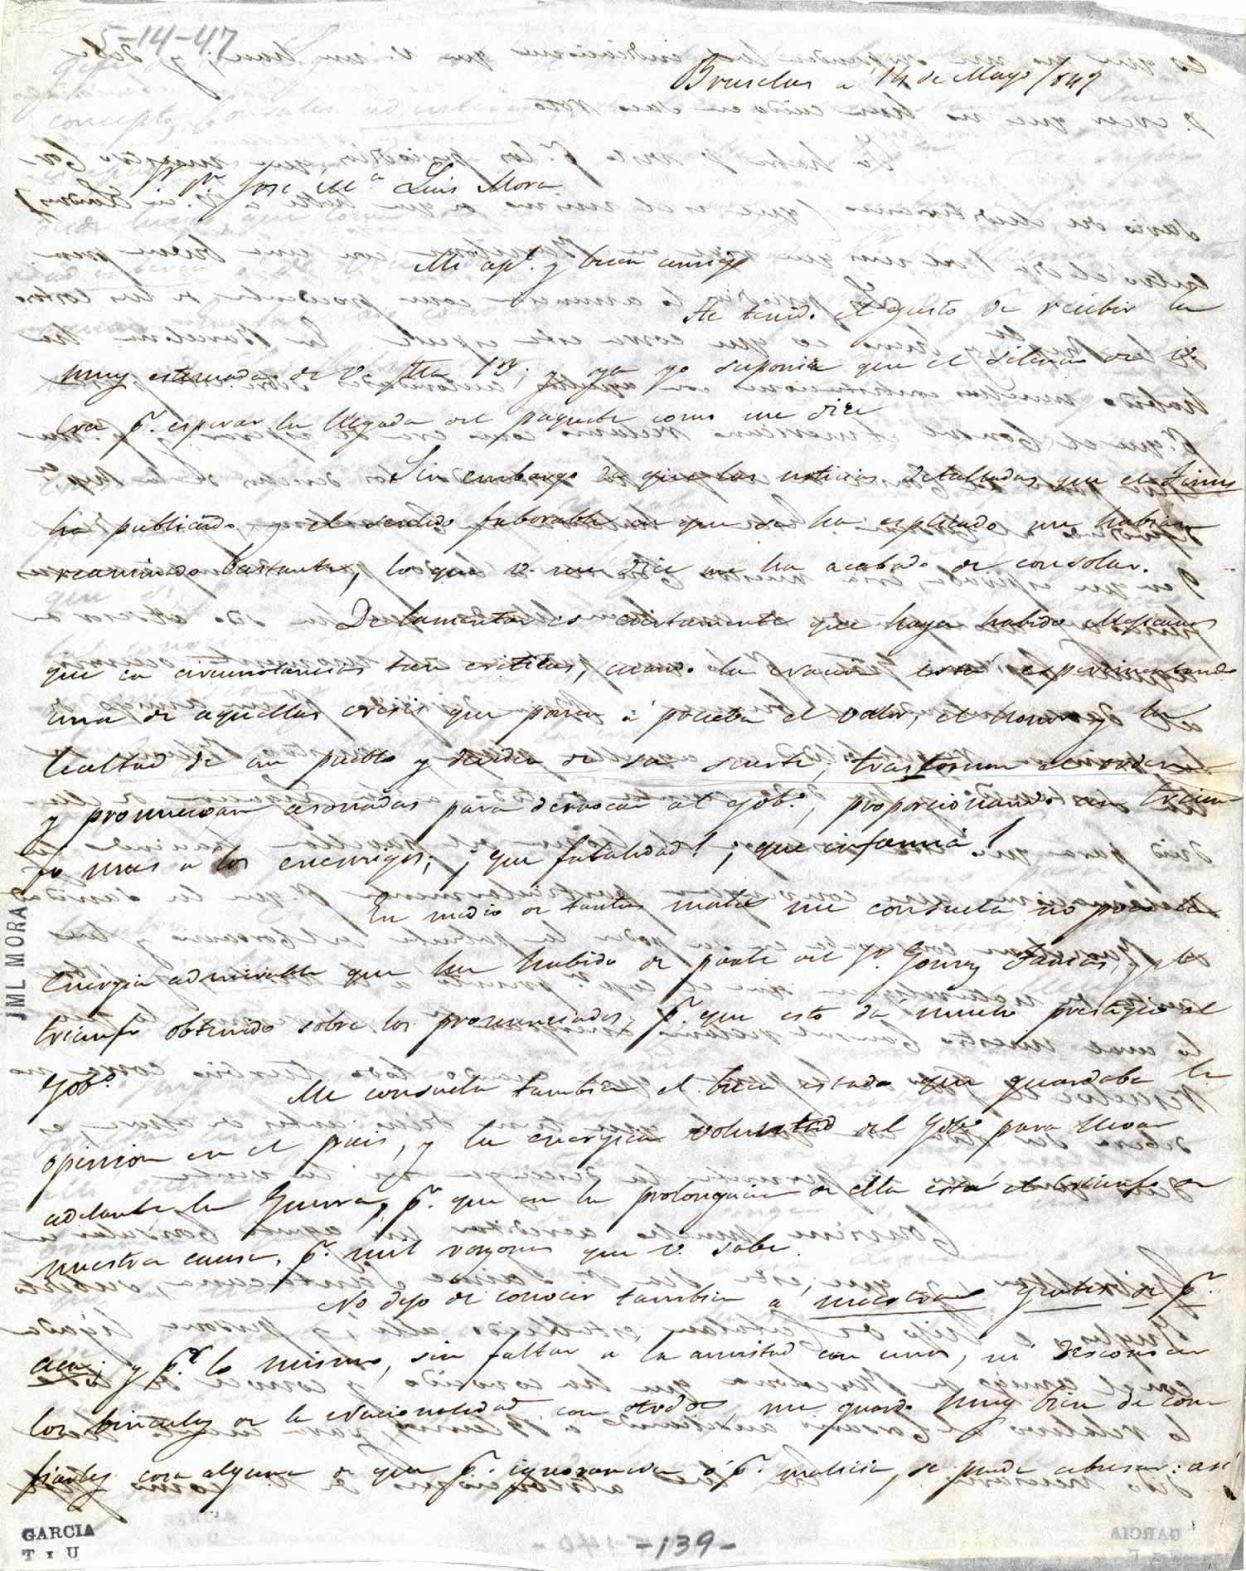 5-14-47
Bruselas a 14 de Mayo /847
Sr. Dn. José Ma. Luis Mora
Mi apo. y buen amigo
He tenido el gusto de recibir la
muy estimada de V. fha 12. y ya yo suponia que el silencio de V.
era pa. esperar la llegada del paquete como me dice
Sin embargo de que las noticias detalladas que el Times
ha publicado y el sentido faborable en que se ha esplicado me habian
reanimado bastante, lo que V. me dice me ha acabado de consolar.
De lamentar es ciertamente que haya habido Mejicanos
que en circunstancias tan criticas, cuando la nacion está esperimentando
una de aquellas crisis que ponen á prueba el valor, el honor y la
lealtad de un pueblo y deciden de su suerte, trastornen el orden
y promuevan asonadas para derrocar al Gobo., proporcionando un triun-
fo mas a los enemigos; ¡que fatalidad! ¡que infamia!
En medio de tantos males me consuela no poco la
energia admirable que ha habido de parte del Sr. Gomez Farias, y el
triunfo obtenido sobre los pronunciados pr. que esto da mucho prestigio al
Gobo.
Me consuela tambien el buen estado que guardaba la
opinion en el pais, y la energica voluntad del Gobo. para llevar
adelante la Guerra, pr. que en la prolongacion de ella está el triunfo de
nuestra causa, pr. mil razones que V. sabe.
No dejo de conocer tambien a nuestras gentes de pr.
aca; y pr. lo mismo, sin faltar a la amistad con unos, ni desconocer
los vinculos de la Nacionalidad con otros me guardo muy bien de con-
fiarles cosa alguna de que pr. ignorancia ó pr. malicia, se pueda abusar: asi
JML MORA
GARCIA
T Y U
-139-